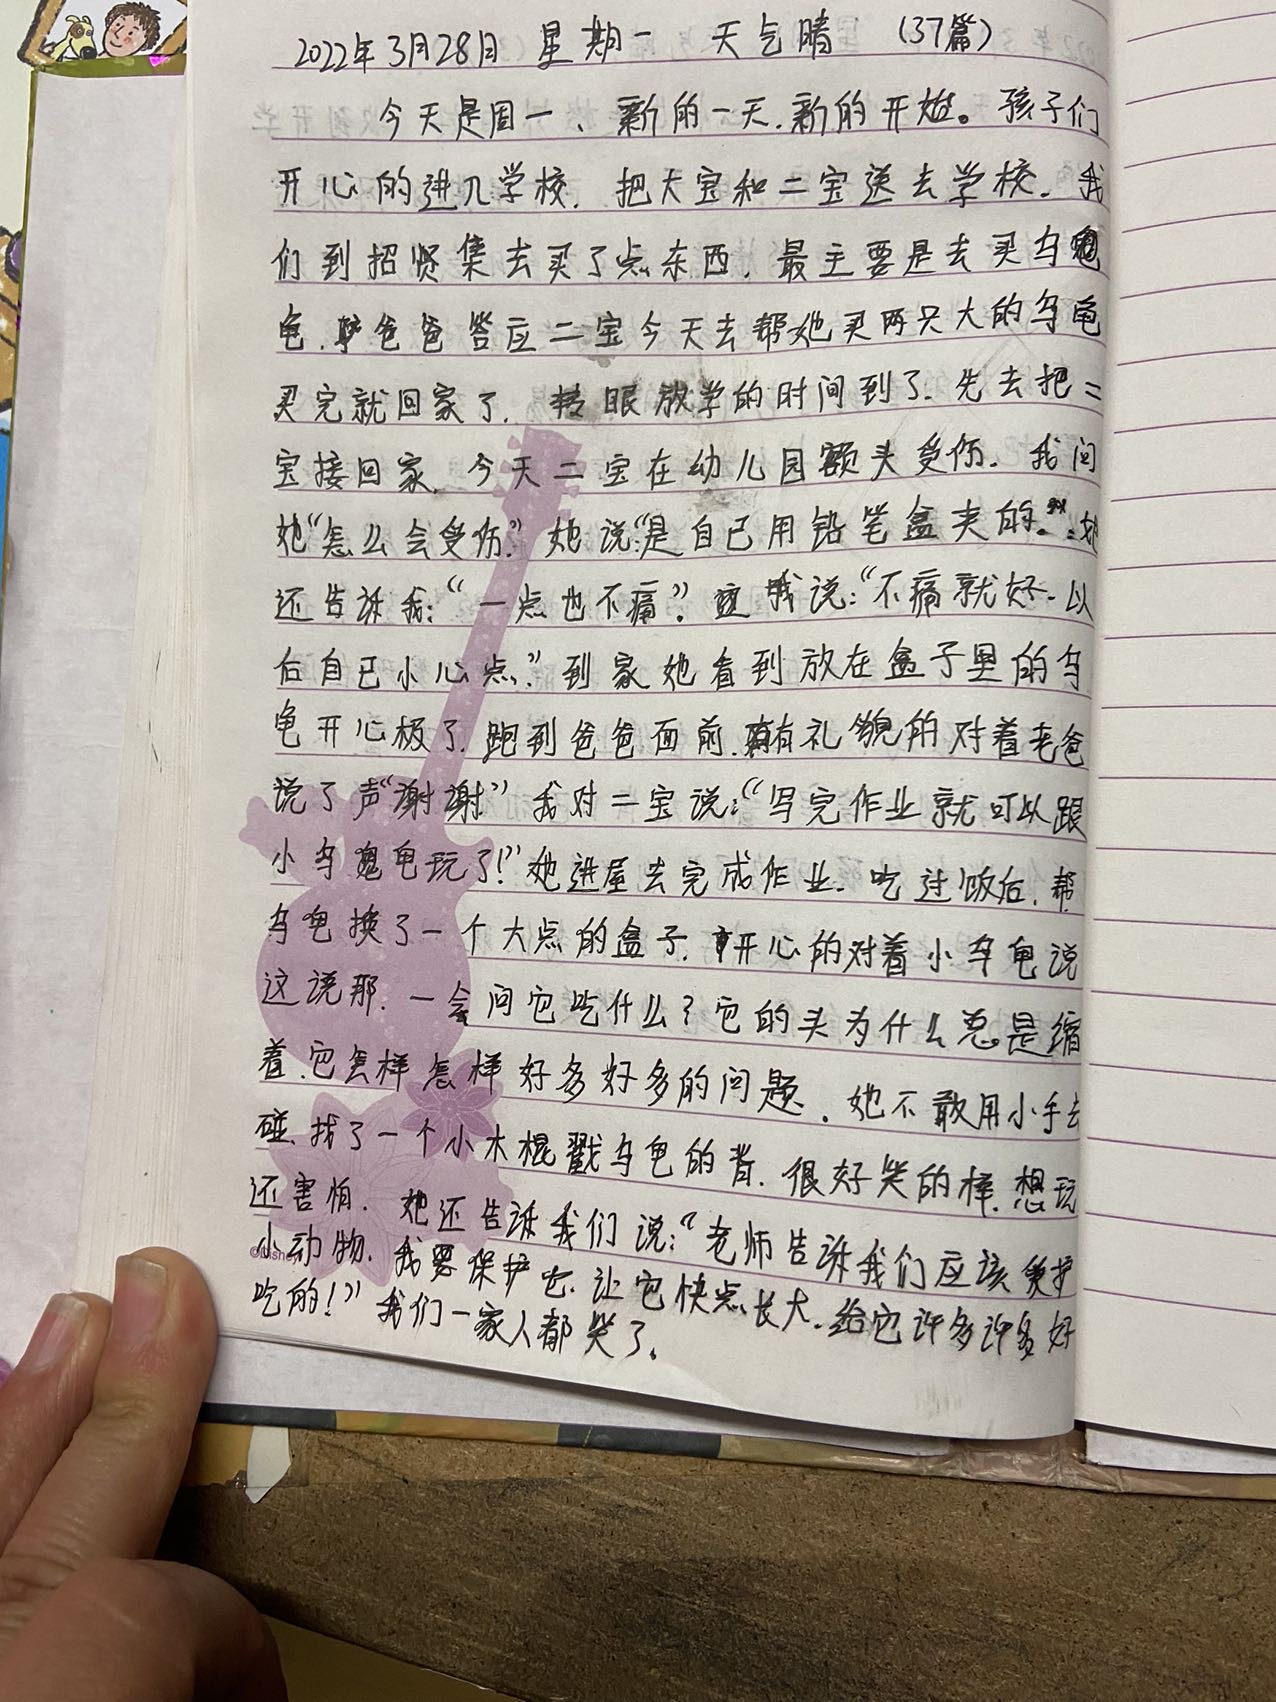 2022年3月28日 星期一 天气晴 (37篇)
今天是周一、新的一天.新的开始。孩子们
开心的进入学校. 把大宝和二宝送去学校. 我
们到招贤集去买了点东西. 最主要是去买乌
龟.爸爸答应二宝今天去帮她买两只大的乌龟
买完就回家了. 转眼放学的时间到了.先去把二
宝接回家.今天二宝在幼儿园额头受伤. 我问
她“怎么会受伤.”她说:“是自己用铅笔盒夹的.”她
还告诉我:“一点也不痛.”我说:“不痛就好.以
后自己小心点.”到家她看到放在盒子里的乌
龟开心极了.跑到爸爸面前.有礼貌的对着老爸
说了声“谢谢”我对二宝说:“写完作业就可以跟
小乌龟玩了!”她进屋去完成作业.吃过饭后.帮
乌龟换了一个大点的盒子.开心的对着小乌龟说
这说那.一会问它吃什么?它的头为什么总是缩
着.它怎样怎样好多好多的问题.她不敢用小手去
碰.找了一个小木棍戳乌龟的背.很好笑的样.想玩
还害怕. 她还告诉我们说:“老师告诉我们应该爱护
小动物.我要保护它.让它快点长大.给它许多许多好
吃的!”我们一家人都笑了.
©Disney